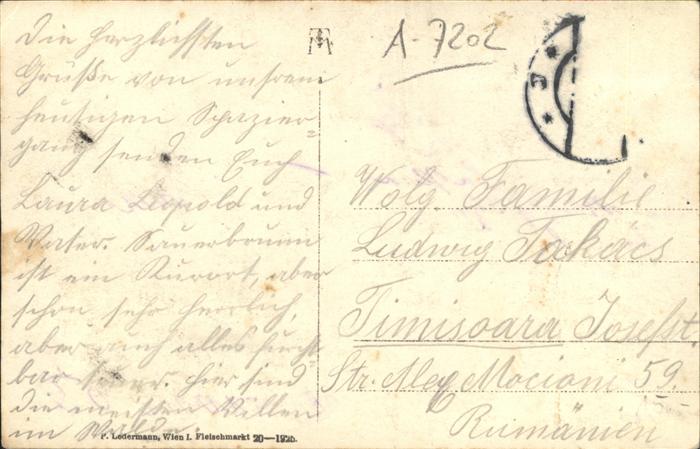 Die herzlichsten
Grüße von unsrem
heutigen Spazier-
gang senden Euch
Laura Leopold und
Vater. Sauerbrunn
ist ein Kurort, aber
schon sehr herrlich,
aber auch alles furcht-
bar teuer. Hier sind
die meisten Villen
im Walde.
A-7202
Wolg. Familie
Ludwig Takács
Timisoara Josefst.
Str. Alex Mocioni 59.
Rumänien
P. Ledermann, Wien I. Fleischmarkt 20—1925.